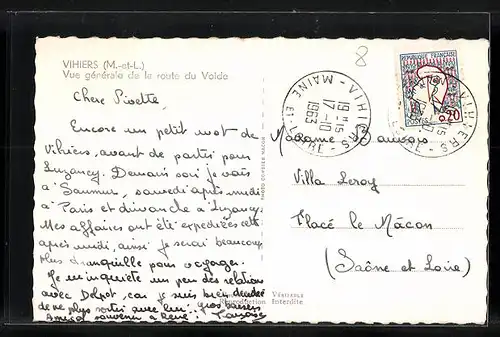 VIHIERS (M.-et-L.)
Vue générale de la route du Voide
Chère Pivette,
Encore un petit mot de
Vihiers, avant de partir pour
Luzancy. Demain soir je vais
à Saumur, samedi après midi
à Paris et dimanche à Luzancy.
Mes affaires ont été expédiées cette
après midi, ainsi je serai beaucoup
plus tranquille pour voyager.
Je m'inquiète un peu des relations
avec Delpor, car je suis bien décidée
de ne plus sortir avec lui. gros baisers
Amical souvenir à René.
8
RÉPUBLIQUE FRANÇAISE
POSTES
0,20
VIHIERS
MAINE ET LOIRE
19H15
17-10
1963
Madame
Villa Leroy
Flacé le Mâcon
(Saône et Loire)
Véritable
Reproduction Interdite